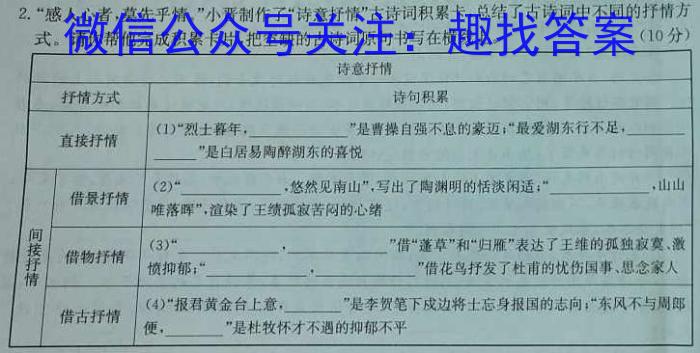 2.“感人心者,莫先乎情。”小严制作了“诗意抒情”古诗词积累卡,总结了古诗词中不同的抒情方
式。
(10分)
微信公众号关注：趣找答案
诗意抒情
抒情方式 诗句积累
直接抒情 (1)“烈士暮年,____________”是曹操自强不息的豪迈;“最爱湖东行不足,______
______”是白居易陶醉湖东的喜悦
间接抒情
借景抒情 (2)“____________,悠然见南山”,写出了陶渊明的恬淡闲适;“____________,山山
唯落晖”,渲染了王绩孤寂苦闷的心绪
借物抒情 (3)“____________,____________”借“蓬草”和“归雁”表达了王维的孤独寂寞、激
愤抑郁;“____________,____________”借花鸟抒发了杜甫的忧伤国事、思念家人
借古抒情 (4)“报君黄金台上意,________”是李贺笔下戍边将士忘身报国的志向;“东风不与周郎
便,________”是杜牧怀才不遇的抑郁不平